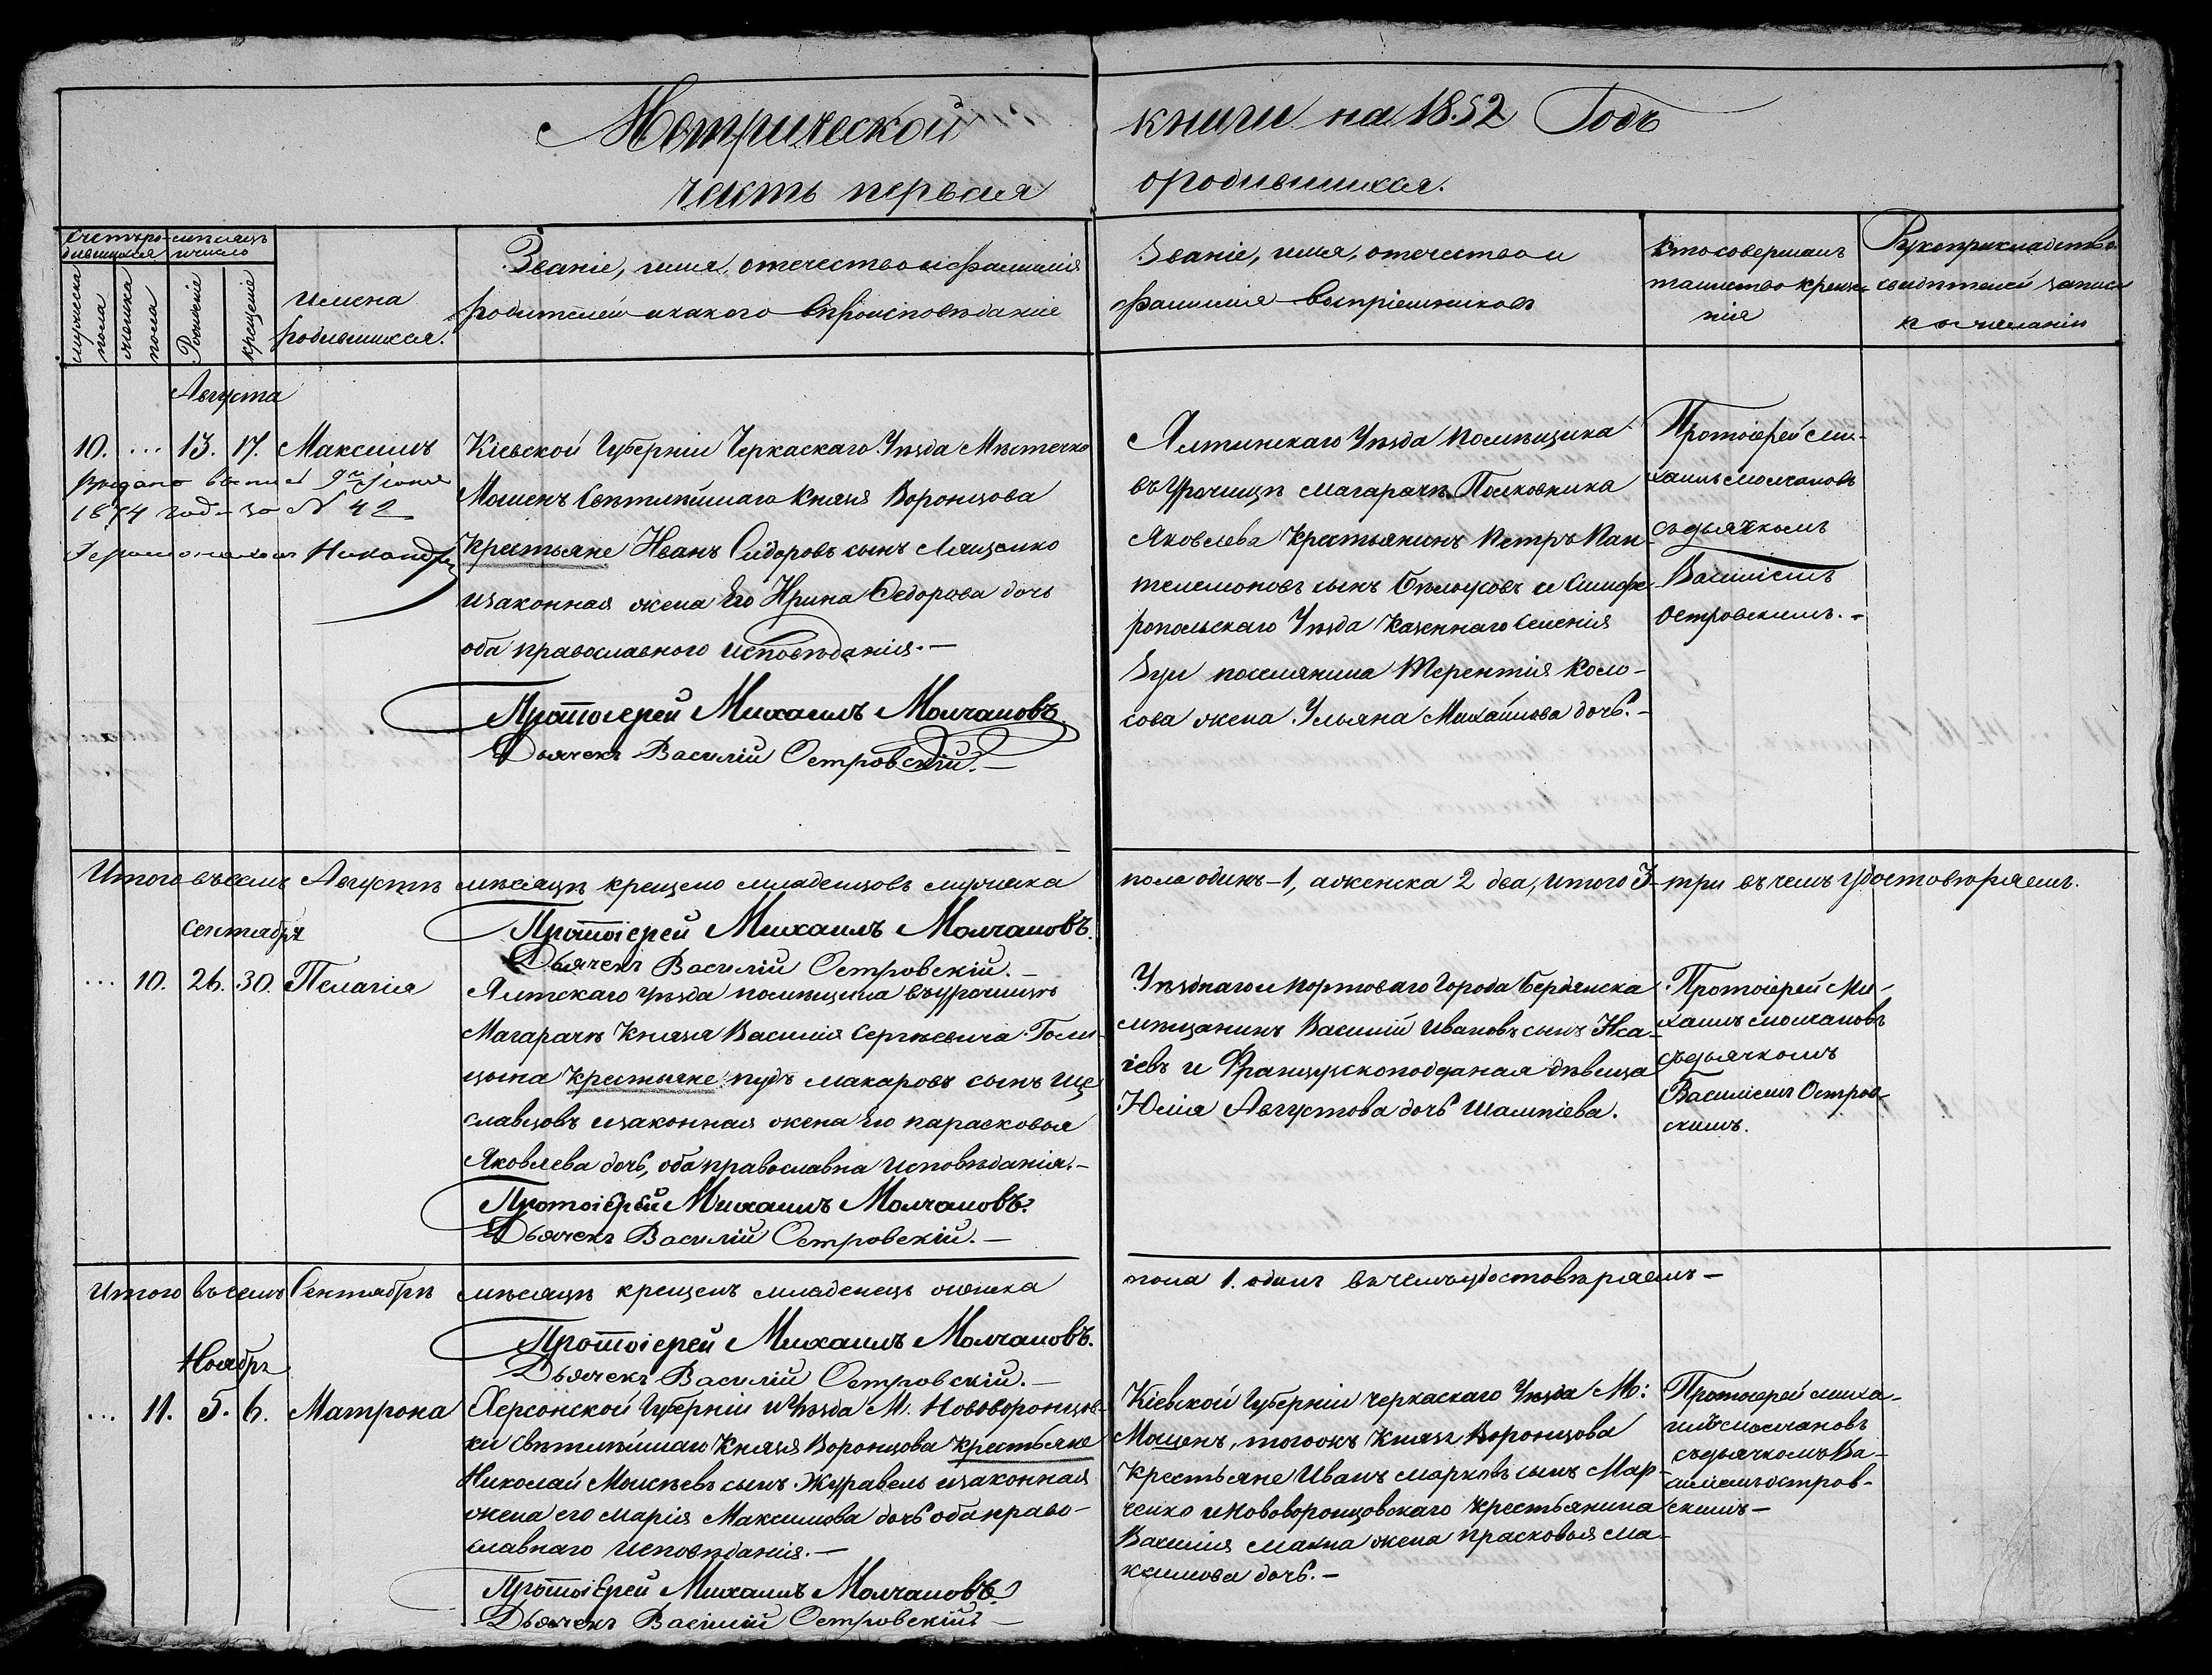 Метрической книги на 1852 Годъ
часть первая о родившихся.
Счетъ ро- мѣсяцъ
дившихся и число
мужеска пола
женска пола
Рожденіе
крещеніе
имена
родившихся.
Званіе, имя, отечество и фамилія
родителей и какого вѣроисповѣданія
Званіе, имя, отечество и
фамилія воспріемниковъ
Кто совершалъ
таинство креще-
нія
Рукоприкладство
свидѣтелей записи
по желанію
Августа
10. ... 13. 17. Максимъ
Выдано 9го Іюня
1874 года за № 42
Іеромонахъ
Кіевской Губерніи Черкаскаго Уѣзда Мѣстечко
Мошенъ Свѣтлѣйшаго Князя Воронцова
Крестьяне Иванъ Сидоровъ сынъ Лященко
и законная жена Его Ирина Федорова дочь
оба православного исповѣданія.—
Протоіерей Михаилъ Молчановъ
Дьячекъ Василій Островскій.—
Ялтинскаго Уѣзда помѣщика
въ Урочищѣ Магарачѣ Полковника
Яковлева Крестьянинъ Петръ Пан-
телемоновъ сынъ и Симфе-
ропольскаго Уѣзда Казеннаго Селенія
Зуи поселянина Терентія Коло-
сова жена Ульяна Михайлова дочь.—
Протоіерей Ми-
хаилъ Молчановъ
съ дьячкомъ
Василіемъ
Островскимъ.—
Итого въ семъ Августѣ мѣсяцѣ крещено младенцовъ мужеска пола одинъ-1, а женска 2 два, итого 3- три въ чемъ удостовѣряемъ.
Протоіерей Михаилъ Молчановъ.
Дьячекъ Василій Островскій.—
Сентябрь
... 10. 26. 30. Пелагія
Ялтскаго Уѣзда помѣщика въ урочищѣ
Магарачѣ Князя Василія Сергѣевича Голи-
цына Крестьяне Макаровъ сынъ Ще
славцовъ и законная жена Его Парасковья
Яковлева дочь, оба православна исповѣданія.—
Протоіерей Михаилъ Молчановъ.
Дьячекъ Василій Островскій.—
Уѣзднаго и портоваго Города Бердянска
мѣщанинъ Василій Ивановъ сынъ Иса-
іевъ и Французскоподданая дѣвица
Юлія Августова дочь Шампіева.
Протоіерей Ми-
хаилъ Молчановъ
съ дьячкомъ
Василіемъ Остров-
скимъ.
Итого въ семъ Сентябрѣ мѣсяцѣ крещенъ младенецъ женска пола 1. одинъ въ чемъ удостовѣряемъ—
Протоіерей Михаилъ Молчановъ.
Дьячекъ Василій Островскій.—
Ноябрь
... 11. 5. 6. Матрона
Херсонской Губерніи и Уѣзда М. Нововоронцов-
ки Свѣтлѣйшаго Князя Воронцова Крестьяне
Николай Моисѣевъ сынъ Журавель и законная
жена его Марія Максимова дочь оба право-
славнаго исповѣданія.—
Протоіерей Михаилъ Молчановъ
Дьячекъ Василій Островскій—
Кіевской Губерніи Черкаскаго Уѣзда М:
Мошенъ, тогожъ Князя Воронцова
Крестьяне Иванъ Марковъ сынъ Мар-
ченко и Нововоронцовскаго Крестьянина
Василія жена Прасковья Ма-
ксимова дочь.—
Протоіерей Миха-
илъ Молчановъ
съ дьячкомъ Ва-
силіемъ Остров-
скимъ—